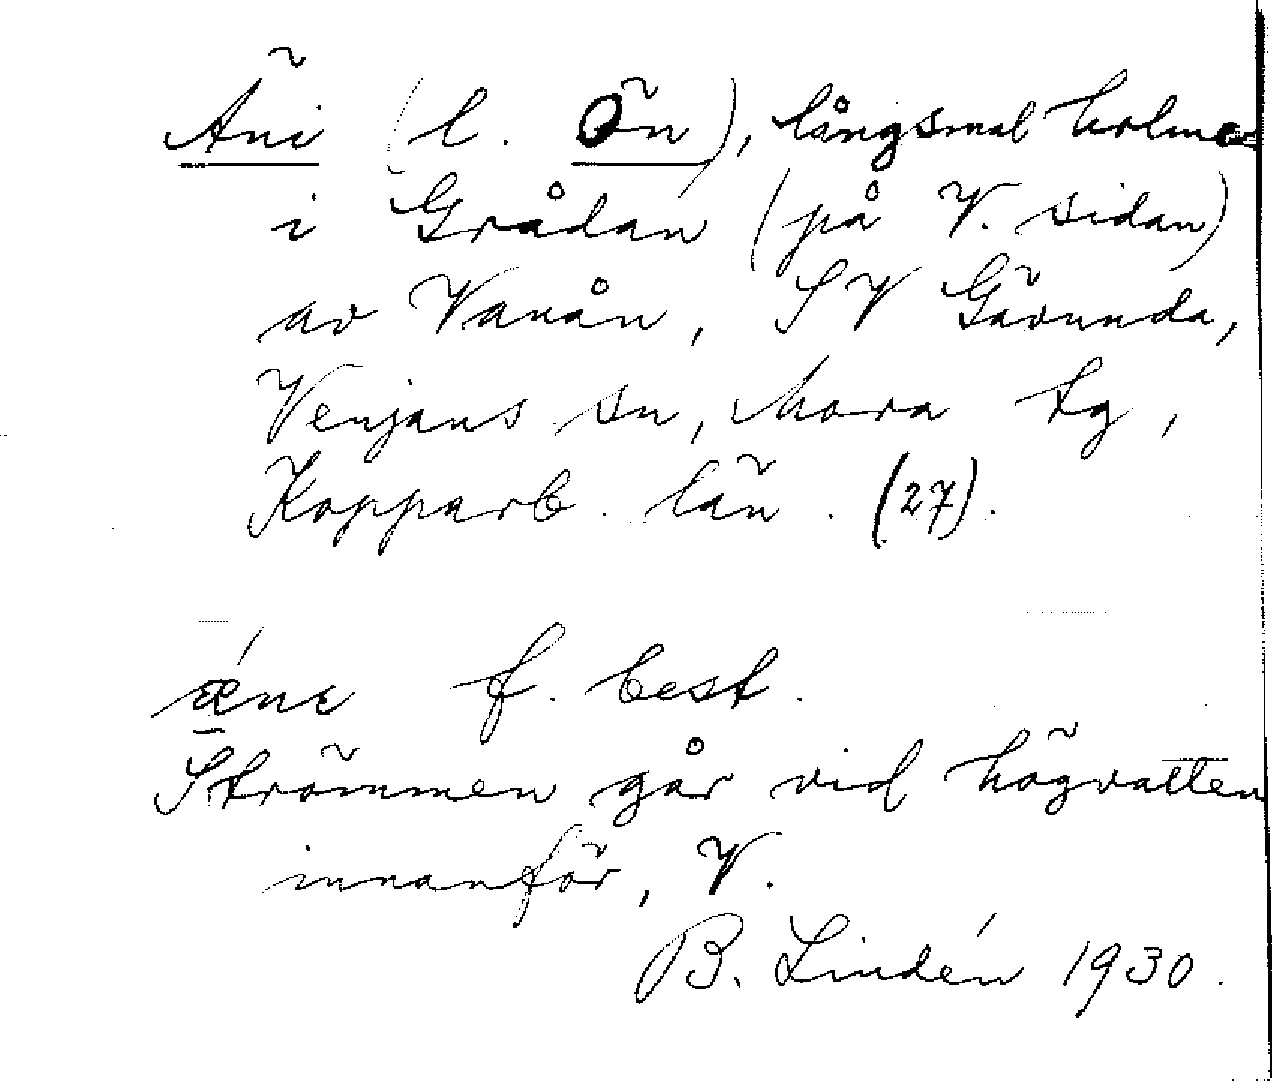 Äni (l. Ön), långsmal holme
i Grådan (på V. sidan)
av Vanån, SV Gävunda,
Venjans sn, Mora tg,
Kopparb. län. (27).
ǽnɛ f. best.
Strömmen går vid högvatten
innanför, V.
B. Lindén 1930.